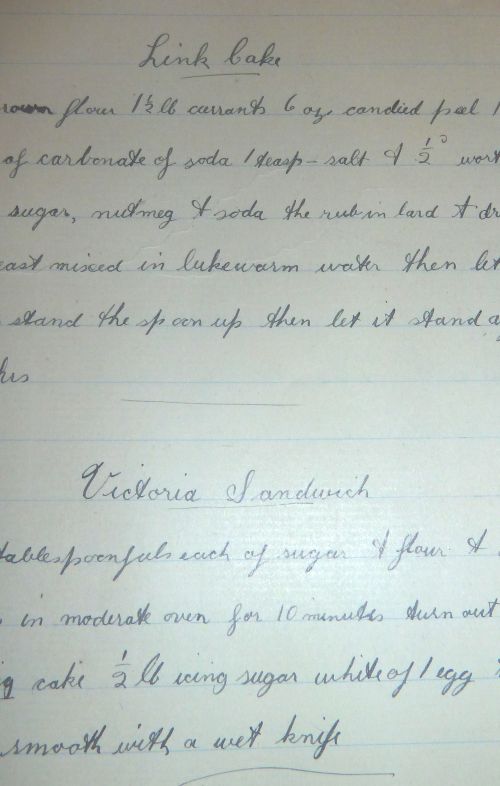 Link Cake
flour 1½ lb currants 6 oz. candied peel 1
of carbonate of soda 1 teasp- salt & ½ wort
sugar, nutmeg & soda the rub in lard & dr
east mixed in lukewarm water then let
stand the spoon up then let it stand a
his
Victoria Sandwich
tablespoonfuls each of sugar & flour &
in moderate oven for 10 minutes turn out
cake ½ lb icing sugar white of 1 egg
smooth with a wet knife